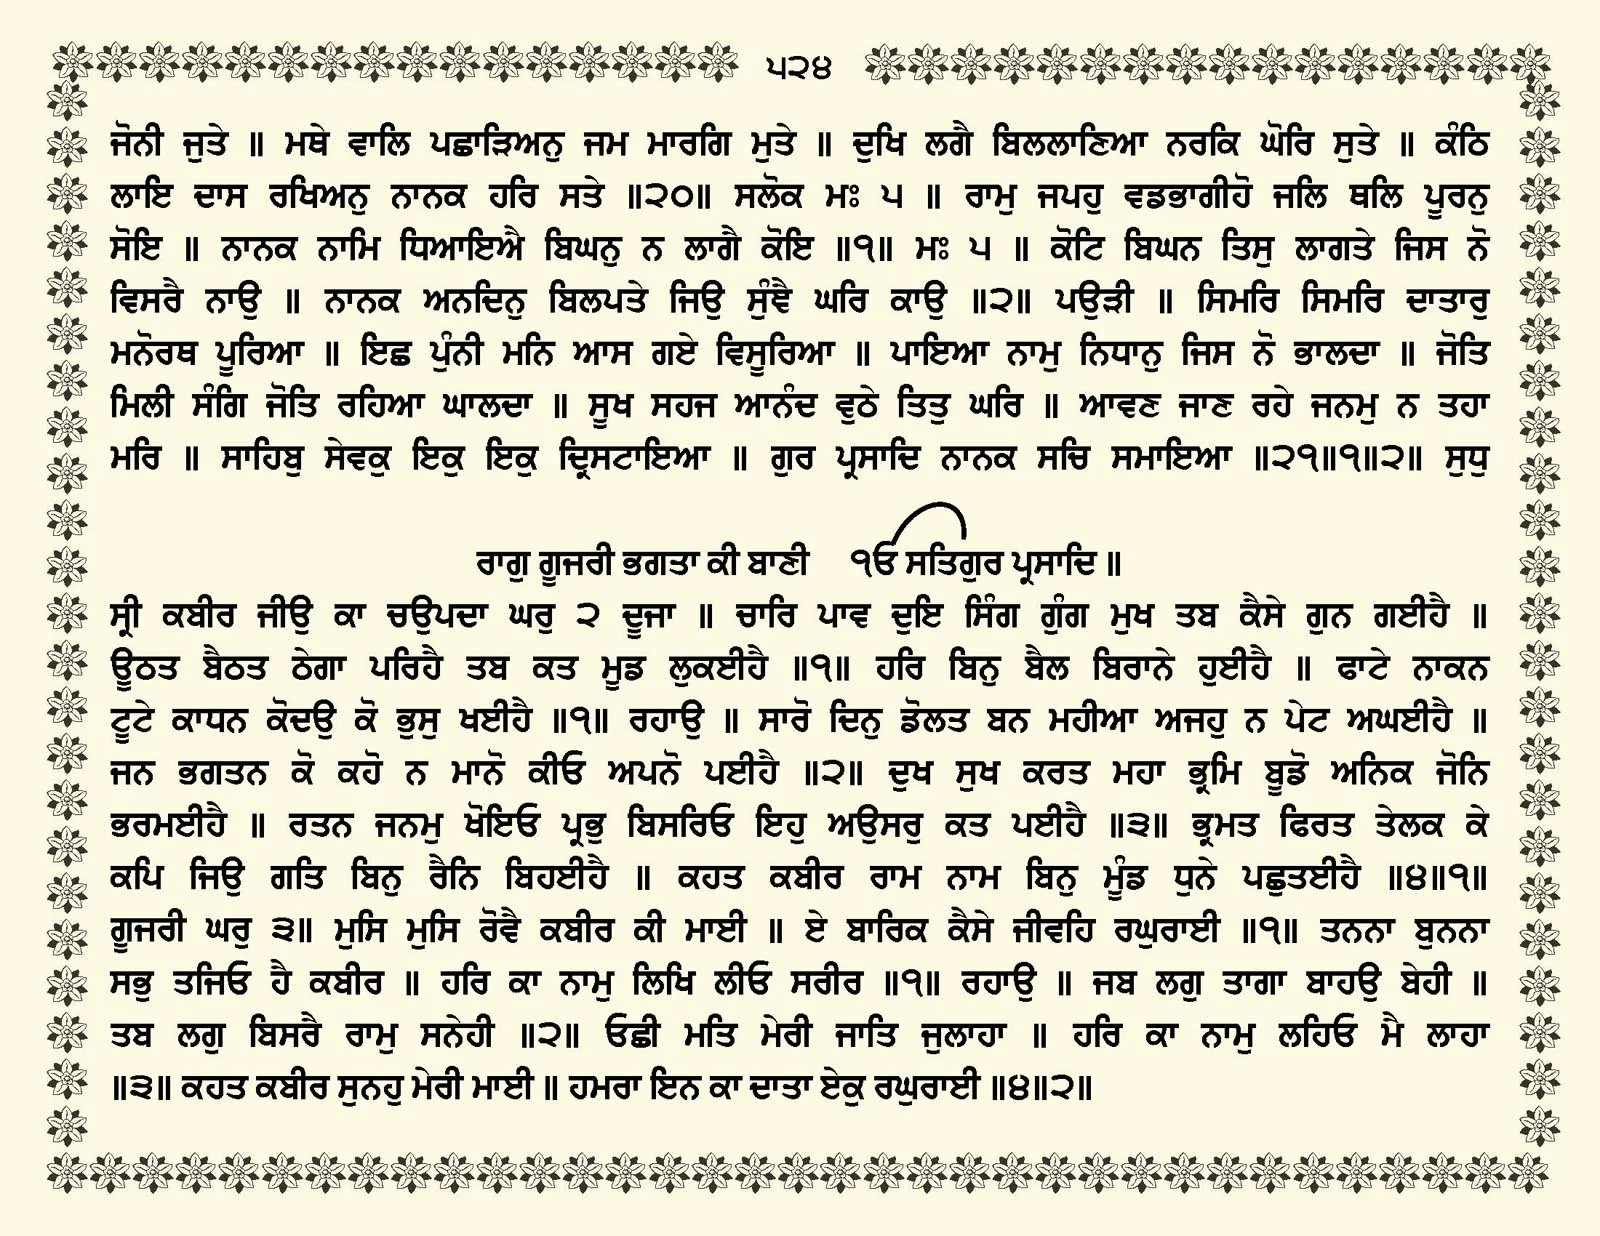 ੫੨੪
ਜੋਨੀ ਜੁਤੇ ॥ ਮਥੇ ਵਾਲਿ ਪਛਾੜਿਅਨੁ ਜਮ ਮਾਰਗਿ ਮੁਤੇ ॥ ਦੁਖਿ ਲਗੈ ਬਿਲਲਾਣਿਆ ਨਰਕਿ ਘੋਰਿ ਸੁਤੇ ॥ ਕੰਠਿ
ਲਾਇ ਦਾਸ ਰਖਿਅਨੁ ਨਾਨਕ ਹਰਿ ਸਤੇ ॥੨੦॥ ਸਲੋਕ ਮਃ ੫ ॥ ਰਾਮੁ ਜਪਹੁ ਵਡਭਾਗੀਹੋ ਜਲਿ ਥਲਿ ਪੂਰਨੁ
ਸੋਇ ॥ ਨਾਨਕ ਨਾਮਿ ਧਿਆਇਐ ਬਿਘਨੁ ਨ ਲਾਗੈ ਕੋਇ ॥੧॥ ਮਃ ੫ ॥ ਕੋਟਿ ਬਿਘਨ ਤਿਸੁ ਲਾਗਤੇ ਜਿਸ ਨੋ
ਵਿਸਰੈ ਨਾਉ ॥ ਨਾਨਕ ਅਨਦਿਨੁ ਬਿਲਪਤੇ ਜਿਉ ਸੁੰਞੈ ਘਰਿ ਕਾਉ ॥੨॥ ਪਉੜੀ ॥ ਸਿਮਰਿ ਸਿਮਰਿ ਦਾਤਾਰੁ
ਮਨੋਰਥ ਪੂਰਿਆ ॥ ਇਛ ਪੁੰਨੀ ਮਨਿ ਆਸ ਗਏ ਵਿਸੂਰਿਆ ॥ ਪਾਇਆ ਨਾਮੁ ਨਿਧਾਨੁ ਜਿਸ ਨੋ ਭਾਲਦਾ ॥ ਜੋਤਿ
ਮਿਲੀ ਸੰਗਿ ਜੋਤਿ ਰਹਿਆ ਘਾਲਦਾ ॥ ਸੂਖ ਸਹਜ ਆਨੰਦ ਵੁਠੇ ਤਿਤੁ ਘਰਿ ॥ ਆਵਣ ਜਾਣ ਰਹੇ ਜਨਮੁ ਨ ਤਹਾ
ਮਰਿ ॥ ਸਾਹਿਬੁ ਸੇਵਕੁ ਇਕੁ ਇਕੁ ਦ੍ਰਿਸਟਾਇਆ ॥ ਗੁਰ ਪ੍ਰਸਾਦਿ ਨਾਨਕ ਸਚਿ ਸਮਾਇਆ ॥੨੧॥੧॥੨॥ ਸੁਧੁ
ਰਾਗੁ ਗੂਜਰੀ ਭਗਤਾ ਕੀ ਬਾਣੀ ੴ ਸਤਿਗੁਰ ਪ੍ਰਸਾਦਿ ॥
ਸ੍ਰੀ ਕਬੀਰ ਜੀਉ ਕਾ ਚਉਪਦਾ ਘਰੁ ੨ ਦੂਜਾ ॥ ਚਾਰਿ ਪਾਵ ਦੁਇ ਸਿੰਗ ਗੁੰਗ ਮੁਖ ਤਬ ਕੈਸੇ ਗੁਨ ਗਈਹੈ ॥
ਊਠਤ ਬੈਠਤ ਠੇਗਾ ਪਰਿਹੈ ਤਬ ਕਤ ਮੂਡ ਲੁਕਈਹੈ ॥੧॥ ਹਰਿ ਬਿਨੁ ਬੈਲ ਬਿਰਾਨੇ ਹੁਈਹੈ ॥ ਫਾਟੇ ਨਾਕਨ
ਟੂਟੇ ਕਾਧਨ ਕੋਦਉ ਕੋ ਭੁਸੁ ਖਈਹੈ ॥੧॥ ਰਹਾਉ ॥ ਸਾਰੋ ਦਿਨੁ ਡੋਲਤ ਬਨ ਮਹੀਆ ਅਜਹੁ ਨ ਪੇਟ ਅਘਈਹੈ ॥
ਜਨ ਭਗਤਨ ਕੋ ਕਹੋ ਨ ਮਾਨੋ ਕੀਓ ਅਪਨੋ ਪਈਹੈ ॥੨॥ ਦੁਖ ਸੁਖ ਕਰਤ ਮਹਾ ਭ੍ਰਮਿ ਬੂਡੋ ਅਨਿਕ ਜੋਨਿ
ਭਰਮਈਹੈ ॥ ਰਤਨ ਜਨਮੁ ਖੋਇਓ ਪ੍ਰਭੁ ਬਿਸਰਿਓ ਇਹੁ ਅਉਸਰੁ ਕਤ ਪਈਹੈ ॥੩॥ ਭ੍ਰਮਤ ਫਿਰਤ ਤੇਲਕ ਕੇ
ਕਪਿ ਜਿਉ ਗਤਿ ਬਿਨੁ ਰੈਨਿ ਬਿਹਈਹੈ ॥ ਕਹਤ ਕਬੀਰ ਰਾਮ ਨਾਮ ਬਿਨੁ ਮੂੰਡ ਧੁਨੇ ਪਛੁਤਈਹੈ ॥੪॥੧॥
ਗੂਜਰੀ ਘਰੁ ੩॥ ਮੁਸਿ ਮੁਸਿ ਰੋਵੈ ਕਬੀਰ ਕੀ ਮਾਈ ॥ ਏ ਬਾਰਿਕ ਕੈਸੇ ਜੀਵਹਿ ਰਘੁਰਾਈ ॥੧॥ ਤਨਨਾ ਬੁਨਨਾ
ਸਭੁ ਤਜਿਓ ਹੈ ਕਬੀਰ ॥ ਹਰਿ ਕਾ ਨਾਮੁ ਲਿਖਿ ਲੀਓ ਸਰੀਰ ॥੧॥ ਰਹਾਉ ॥ ਜਬ ਲਗੁ ਤਾਗਾ ਬਾਹਉ ਬੇਹੀ ॥
ਤਬ ਲਗੁ ਬਿਸਰੈ ਰਾਮੁ ਸਨੇਹੀ ॥੨॥ ਓਛੀ ਮਤਿ ਮੇਰੀ ਜਾਤਿ ਜੁਲਾਹਾ ॥ ਹਰਿ ਕਾ ਨਾਮੁ ਲਹਿਓ ਮੈ ਲਾਹਾ
॥੩॥ ਕਹਤ ਕਬੀਰ ਸੁਨਹੁ ਮੇਰੀ ਮਾਈ ॥ ਹਮਰਾ ਇਨ ਕਾ ਦਾਤਾ ਏਕੁ ਰਘੁਰਾਈ ॥੪॥੨॥